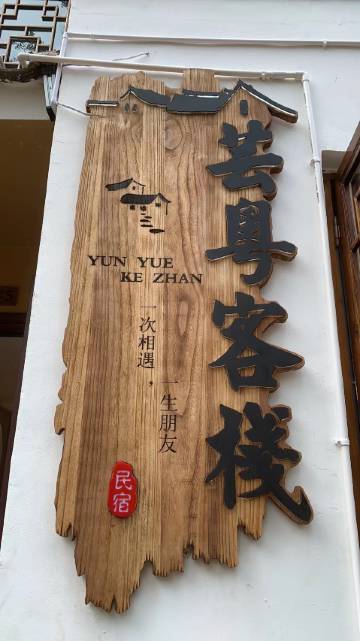 芸粤客栈
YUN YUE
KE ZHAN
一次相遇，
一生朋友
民宿